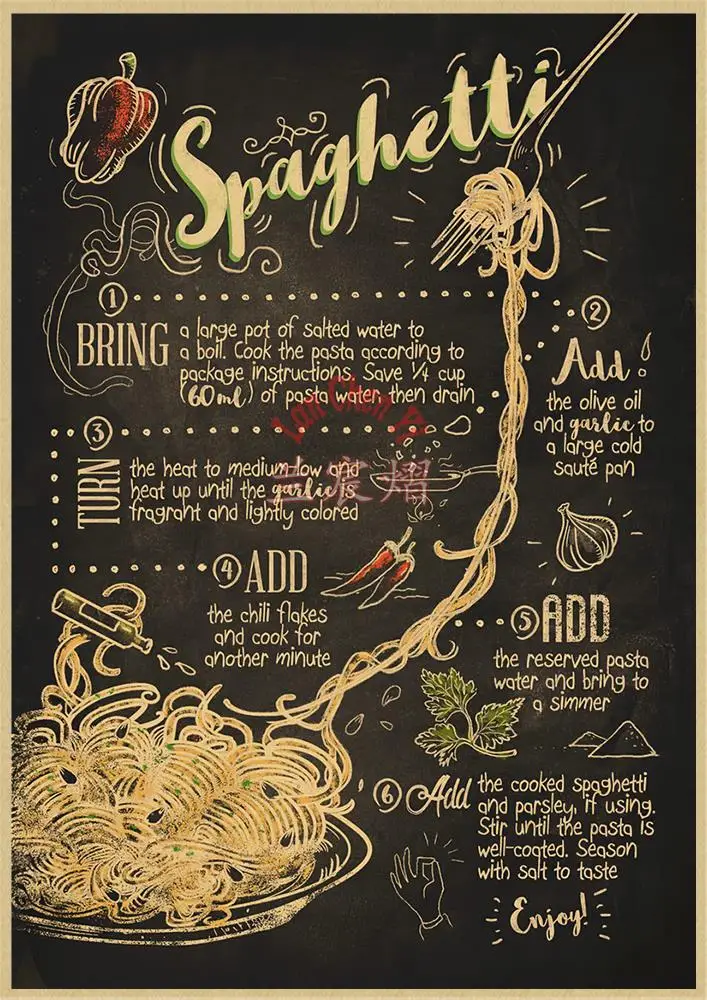 Spaghetti
① BRING a large pot of salted water to
a boil. Cook the pasta according to
package instructions. Save ¼ cup
(60ml) of pasta water, then drain
② Add
the olive oil
and garlic to
a large cold
sauté pan
③ TURN the heat to medium-low and
heat up until the garlic is
fragrant and lightly colored
④ ADD
the chili flakes
and cook for
another minute
⑤ ADD
the reserved pasta
water and bring to
a simmer
⑥ Add the cooked spaghetti
and parsley, if using.
Stir until the pasta is
well-coated. Season
with salt to taste
Enjoy!
Lan Chen Yi